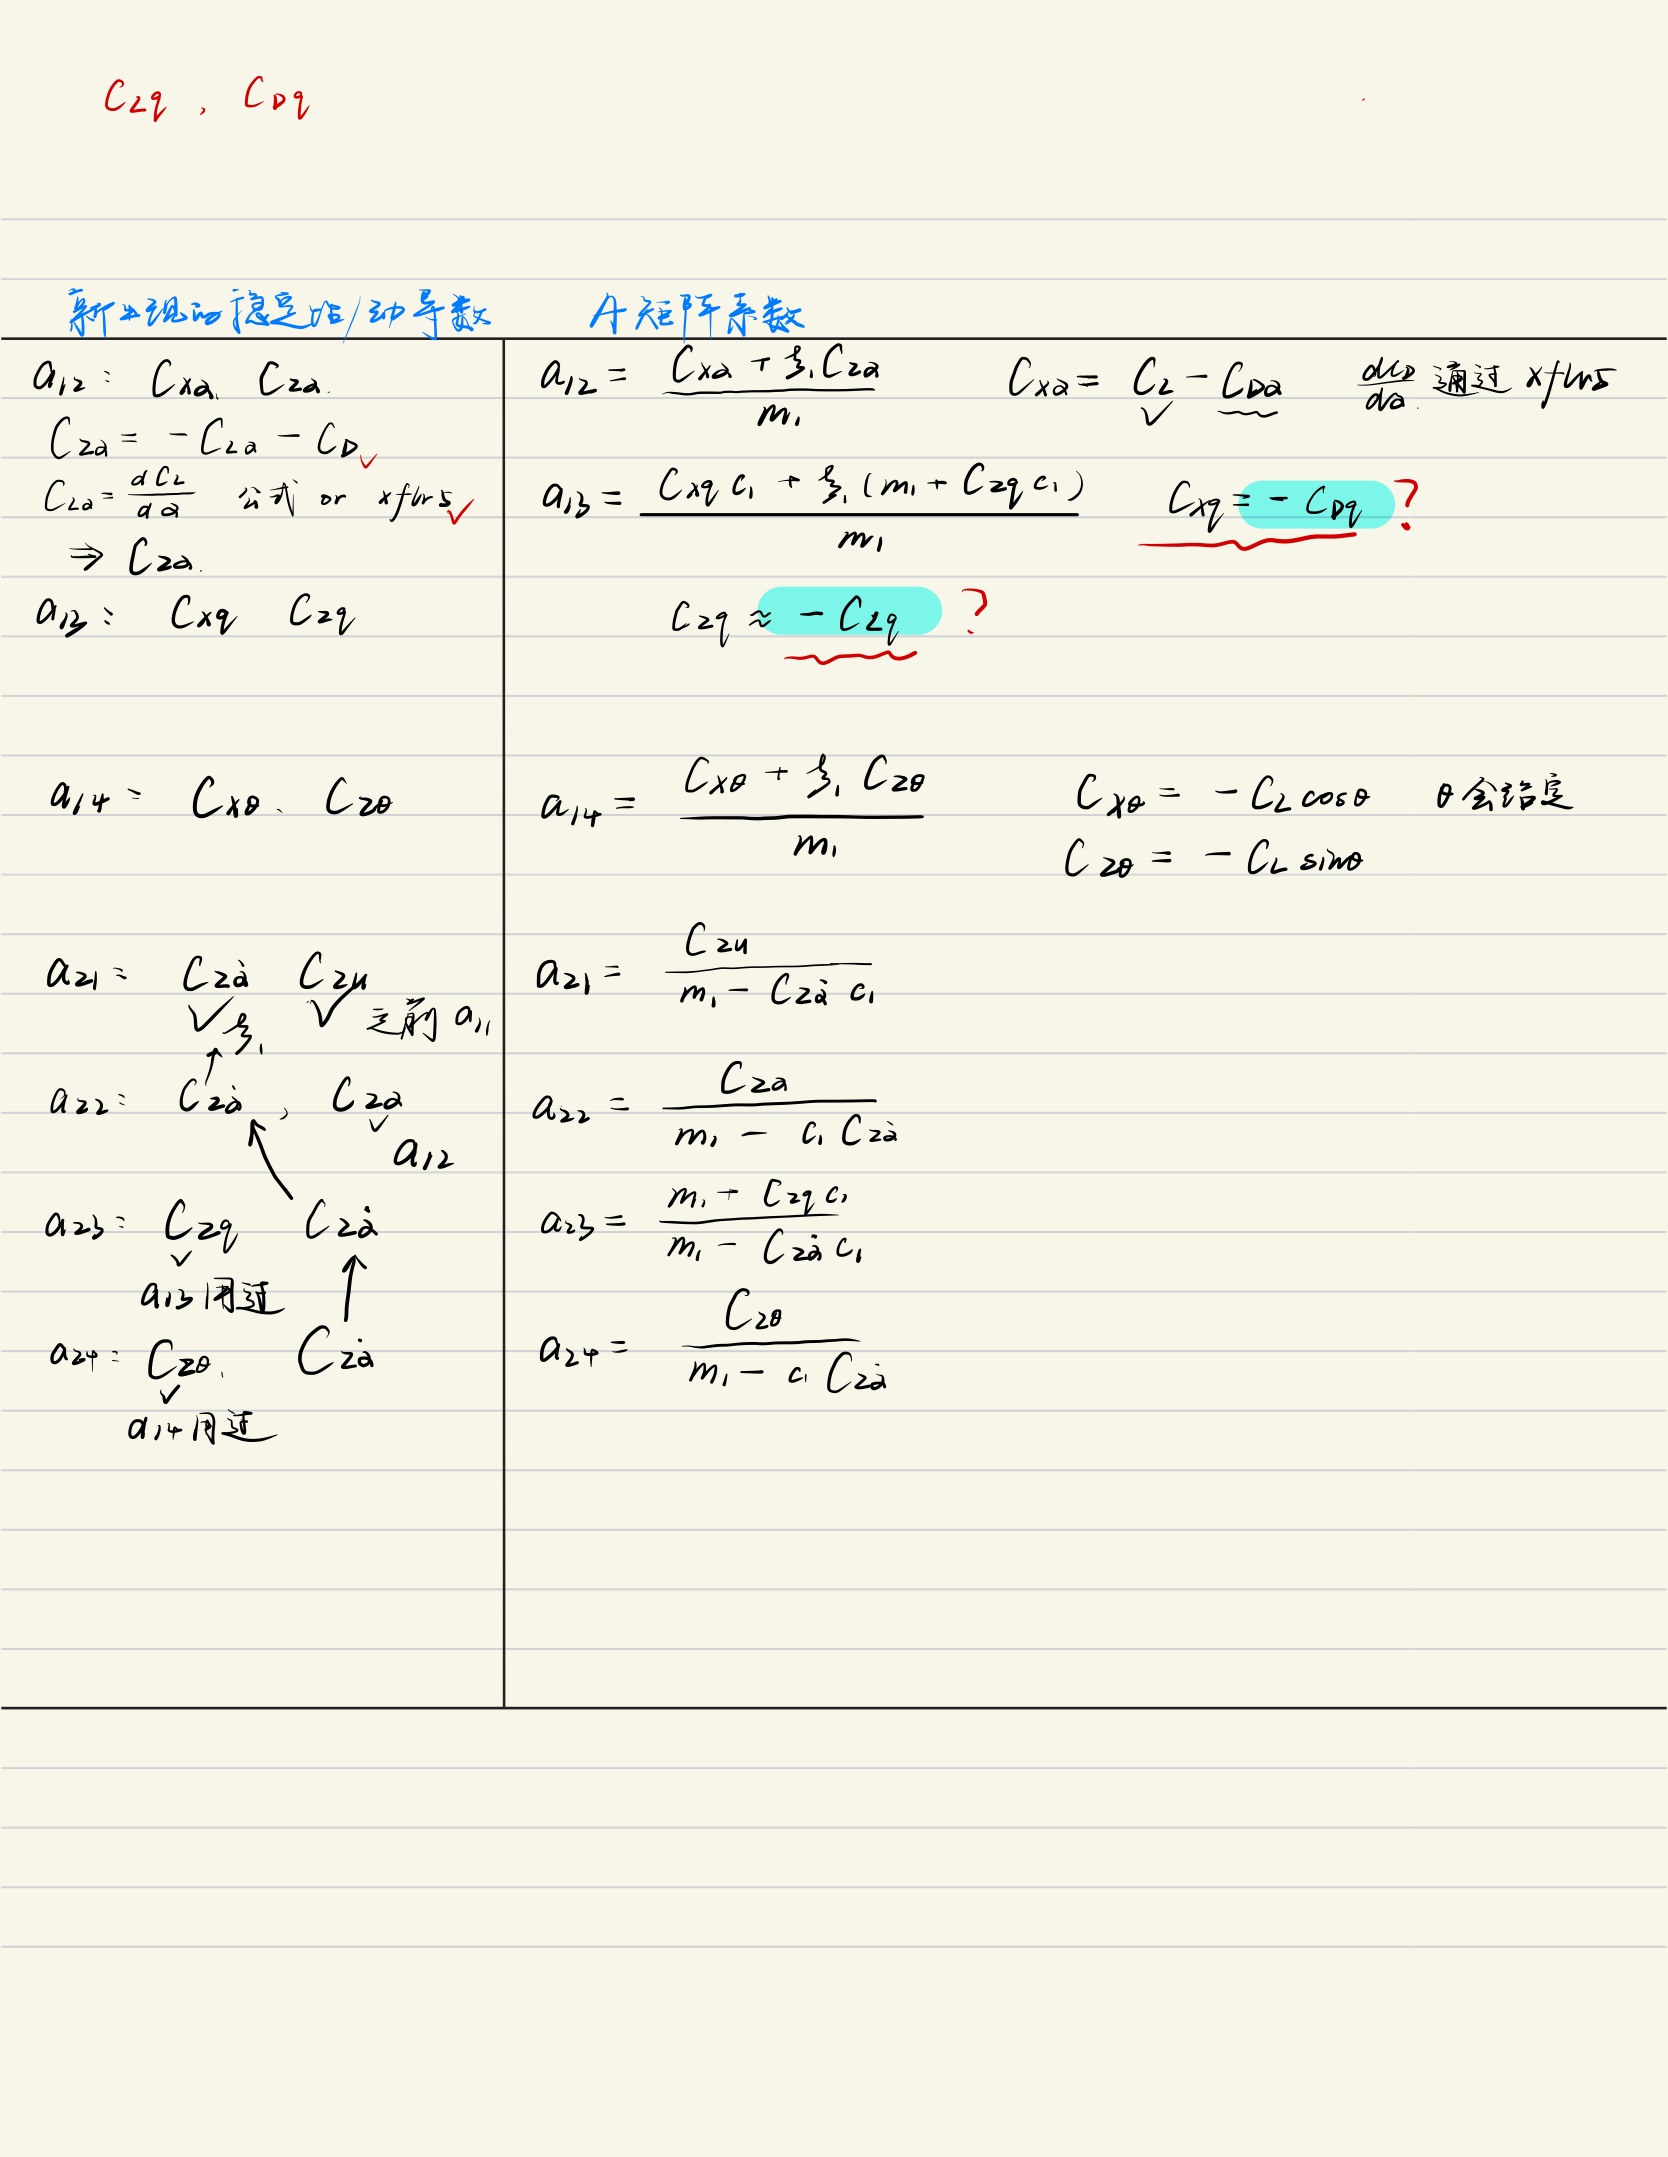 C_Lq , C_Dq
新出现的稳定性/动导数
A矩阵系数
a₁₂: C_xα、C_zα
C_zα = -C_Lα - C_D ✓
C_Lα = dC_L/dα 公式 or xflr5 ✓
⇒ C_zα
a₁₃: C_xq C_zq
a₁₄: C_xθ、C_zθ
a₂₁: C_zα̇ ✓ ξ₁ C_zu ✓ 之前 a₁₁
a₂₂: C_zα̇ , C_zα ✓
a₁₂
a₂₃: C_zq ✓ C_zα̇
a₁₃用过
a₂₄: C_zθ、 ✓ C_zα̇
a₁₄用过
a₁₂ = (C_xα + ξ₁C_zα) / m₁ C_xα = C_L ✓ - C_Dα dC_D/dα 通过 xflr5
a₁₃ = (C_xq c₁ + ξ₁(m₁ + C_zq c₁)) / m₁ C_xq = - C_Dq ?
C_zq ≈ - C_Lq ?
a₁₄ = (C_xθ + ξ₁ C_zθ) / m₁ C_xθ = - C_L cosθ θ会给定
C_zθ = - C_L sinθ
a₂₁ = C_zu / (m₁ - C_zα̇ c₁)
a₂₂ = C_zα / (m₁ - c₁ C_zα̇)
a₂₃ = (m₁ + C_zq c₁) / (m₁ - C_zα̇ c₁)
a₂₄ = C_zθ / (m₁ - c₁ C_zα̇)